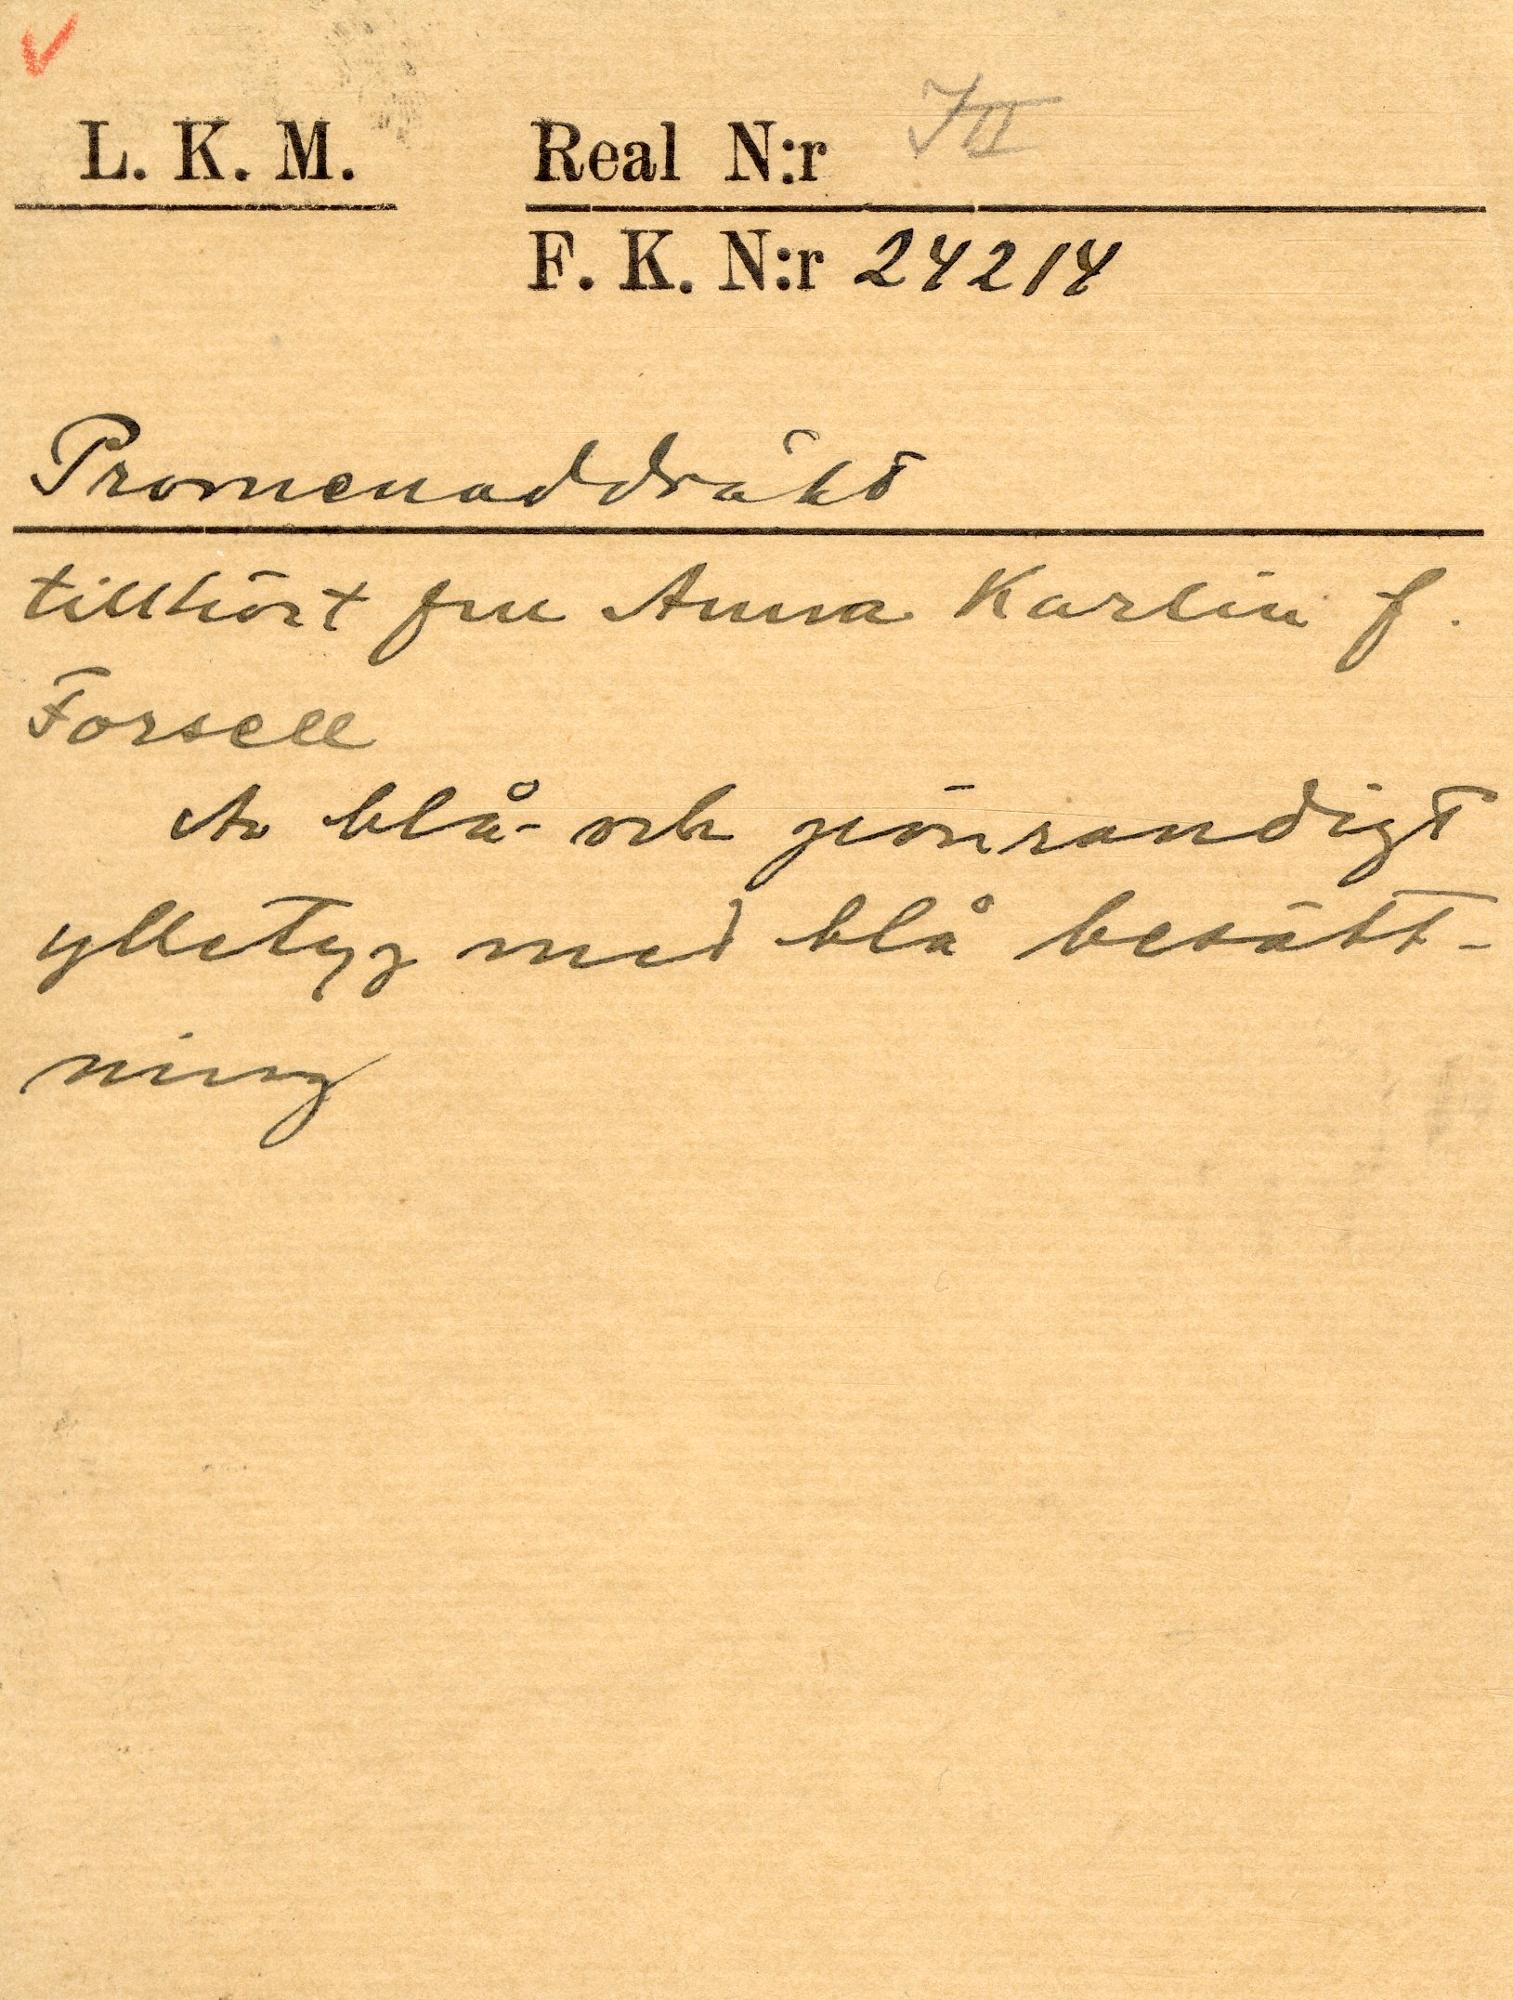 L. K. M. Real N:r III
F. K. N:r 24214
Promenaddräkt
tillhört fru Anna Karlin f.
Forsell
Av blå- och grönrandigt
ylletyg med blå besätt-
ning